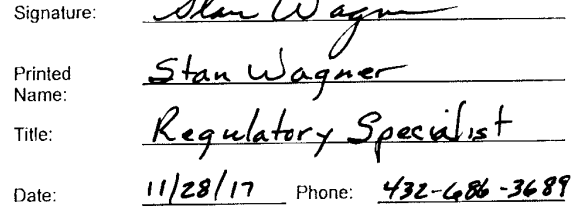 Signature: Stan Wagner
Printed
Name: Stan Wagner
Title: Regulatory Specialist
Date: 11/28/17 Phone: 432-686-3689